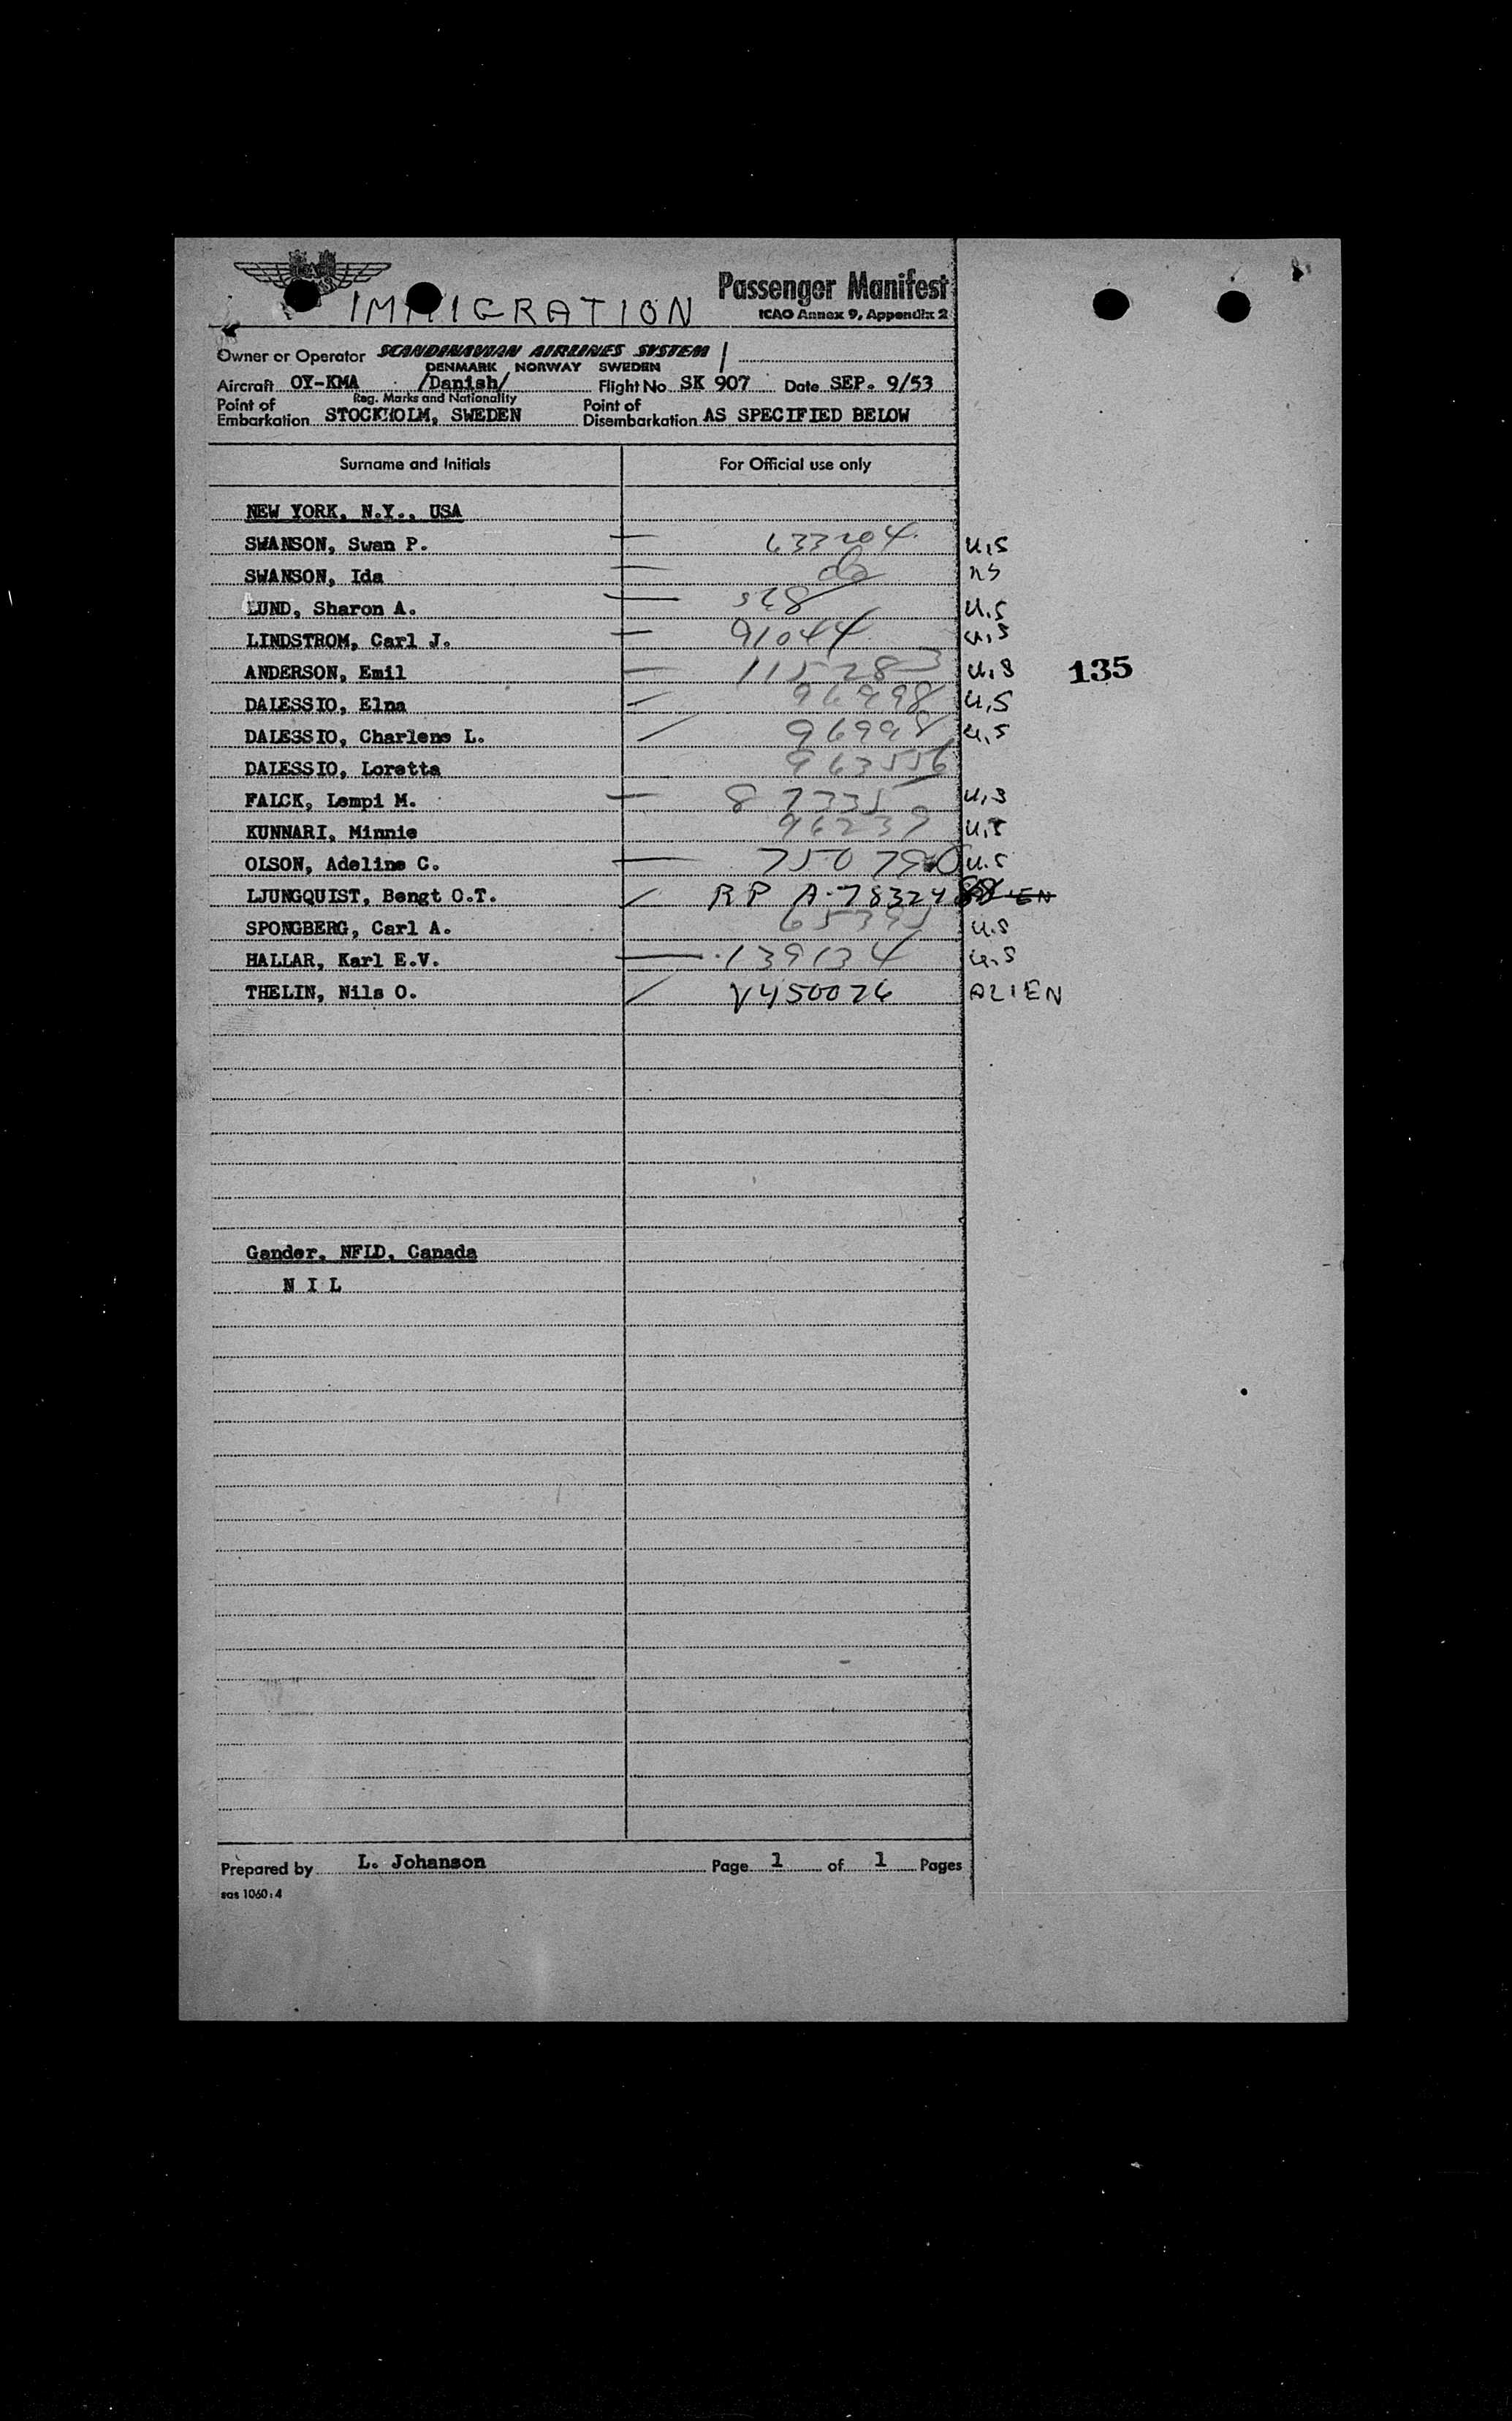 IMMIGRATION
Passenger Manifest
ICAO Annex 9, Appendix 2
Owner or Operator SCANDINAVIAN AIRLINES SYSTEM
DENMARK NORWAY SWEDEN
Aircraft OY-KMA /Danish/ Flight No. SK 907 Date SEP. 9/53
Reg. Marks and Nationality
Point of Embarkation STOCKHOLM, SWEDEN Point of Disembarkation AS SPECIFIED BELOW
Surname and Initials For Official use only
NEW YORK, N.Y., USA
SWANSON, Swan P. — 633204 U.S
SWANSON, Ida — do US
LUND, Sharon A. — 528 U.S
LINDSTROM, Carl J. — 91044 U.S
ANDERSON, Emil — 115283 U.S 135
DALESSIO, Elna 96998 U.S
DALESSIO, Charlene L. 96998 U.S
DALESSIO, Loretta 963556
FALCK, Lempi M. — 87335 U.S
KUNNARI, Minnie 96239 U.S
OLSON, Adeline C. — U.S
LJUNGQUIST, Bengt O.T. RP
SPONGBERG, Carl A. U.S
HALLAR, Karl E.V. — 139134 U.S
THELIN, Nils O. V450026 ALIEN
Gander, NFLD, Canada
N I L
Prepared by L. Johanson Page 1 of 1 Pages
sas 1060:4